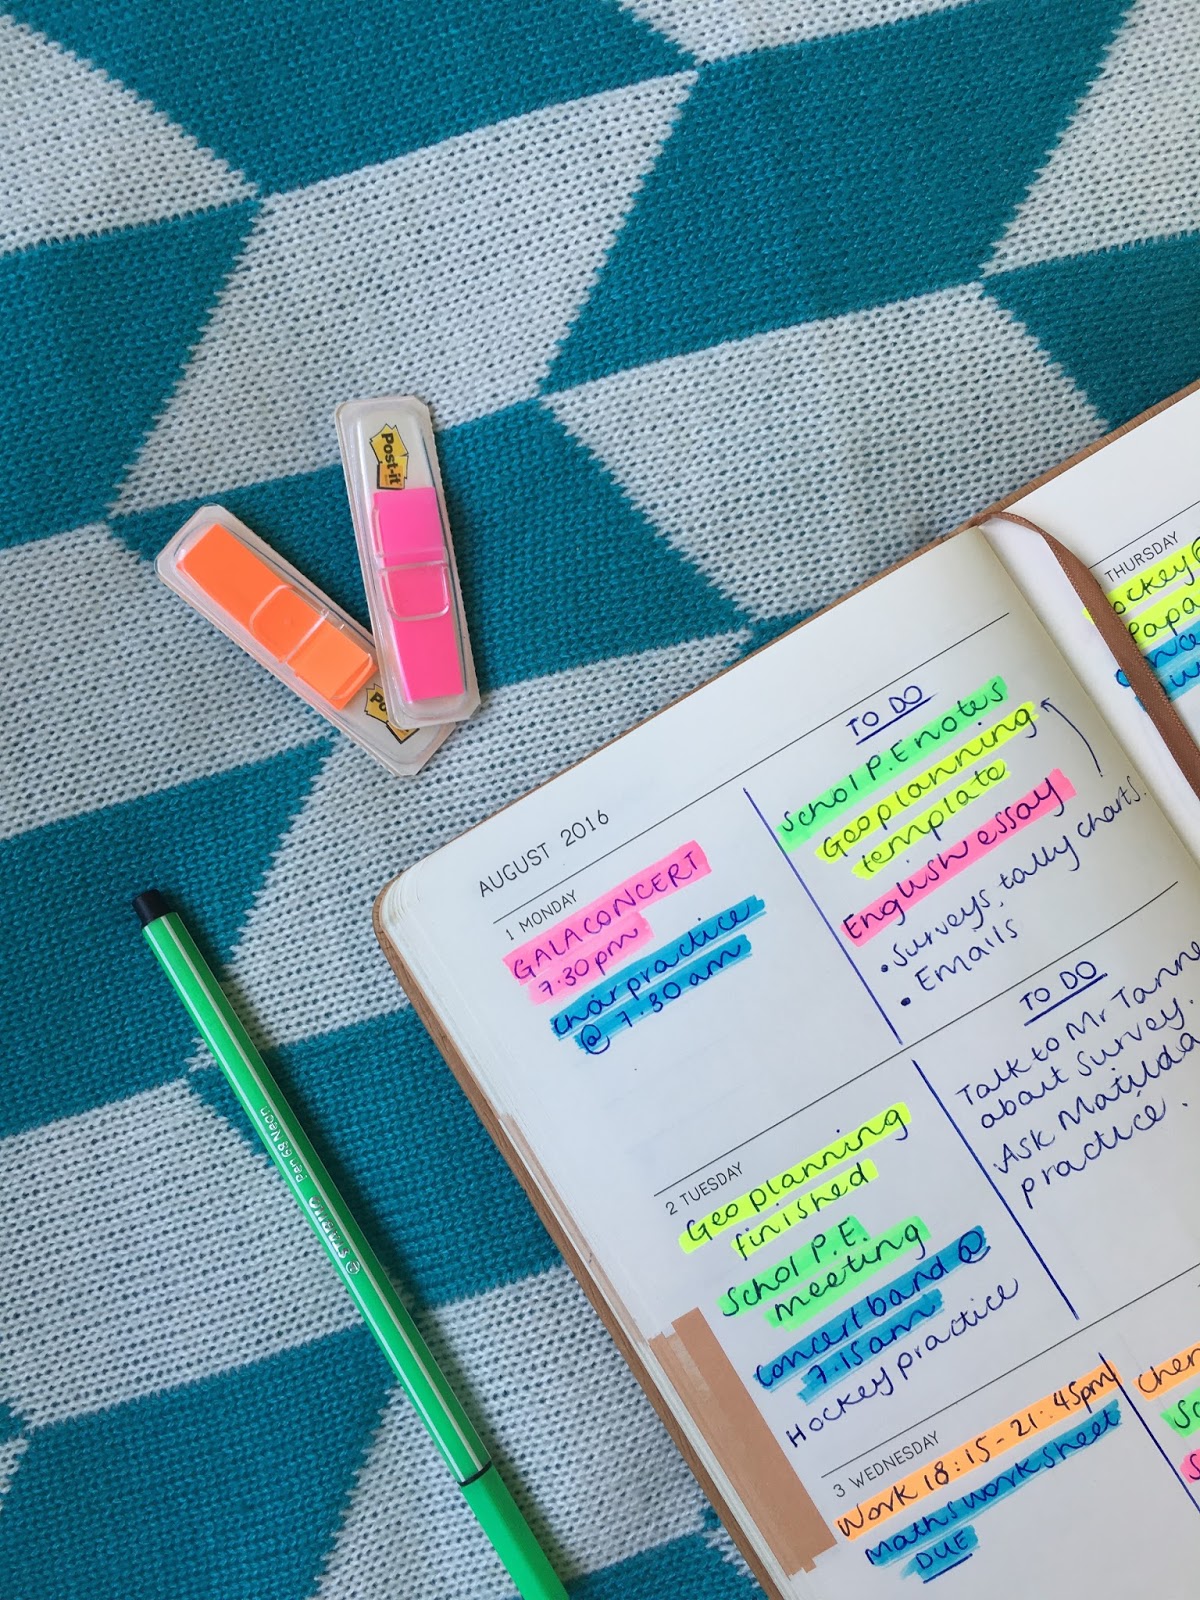 Post-it
Post-it
STABILO Pen 68 Neon
AUGUST 2016
1 MONDAY
GALA CONCERT
7.30pm
choir practice
@ 7.30am
TO DO
Schol P.E notes
Geo planning
template
English essay
• Surveys, tally charts.
• Emails
2 TUESDAY
Geo planning
finished
Schol P.E.
meeting
Concert band @
7.15am
Hockey practice
TO DO
Talk to Mr
about Survey.
Ask Matilda
practice.
3 WEDNESDAY
Work 18:15-21:45pm
Maths worksheet
DUE
THURSDAY